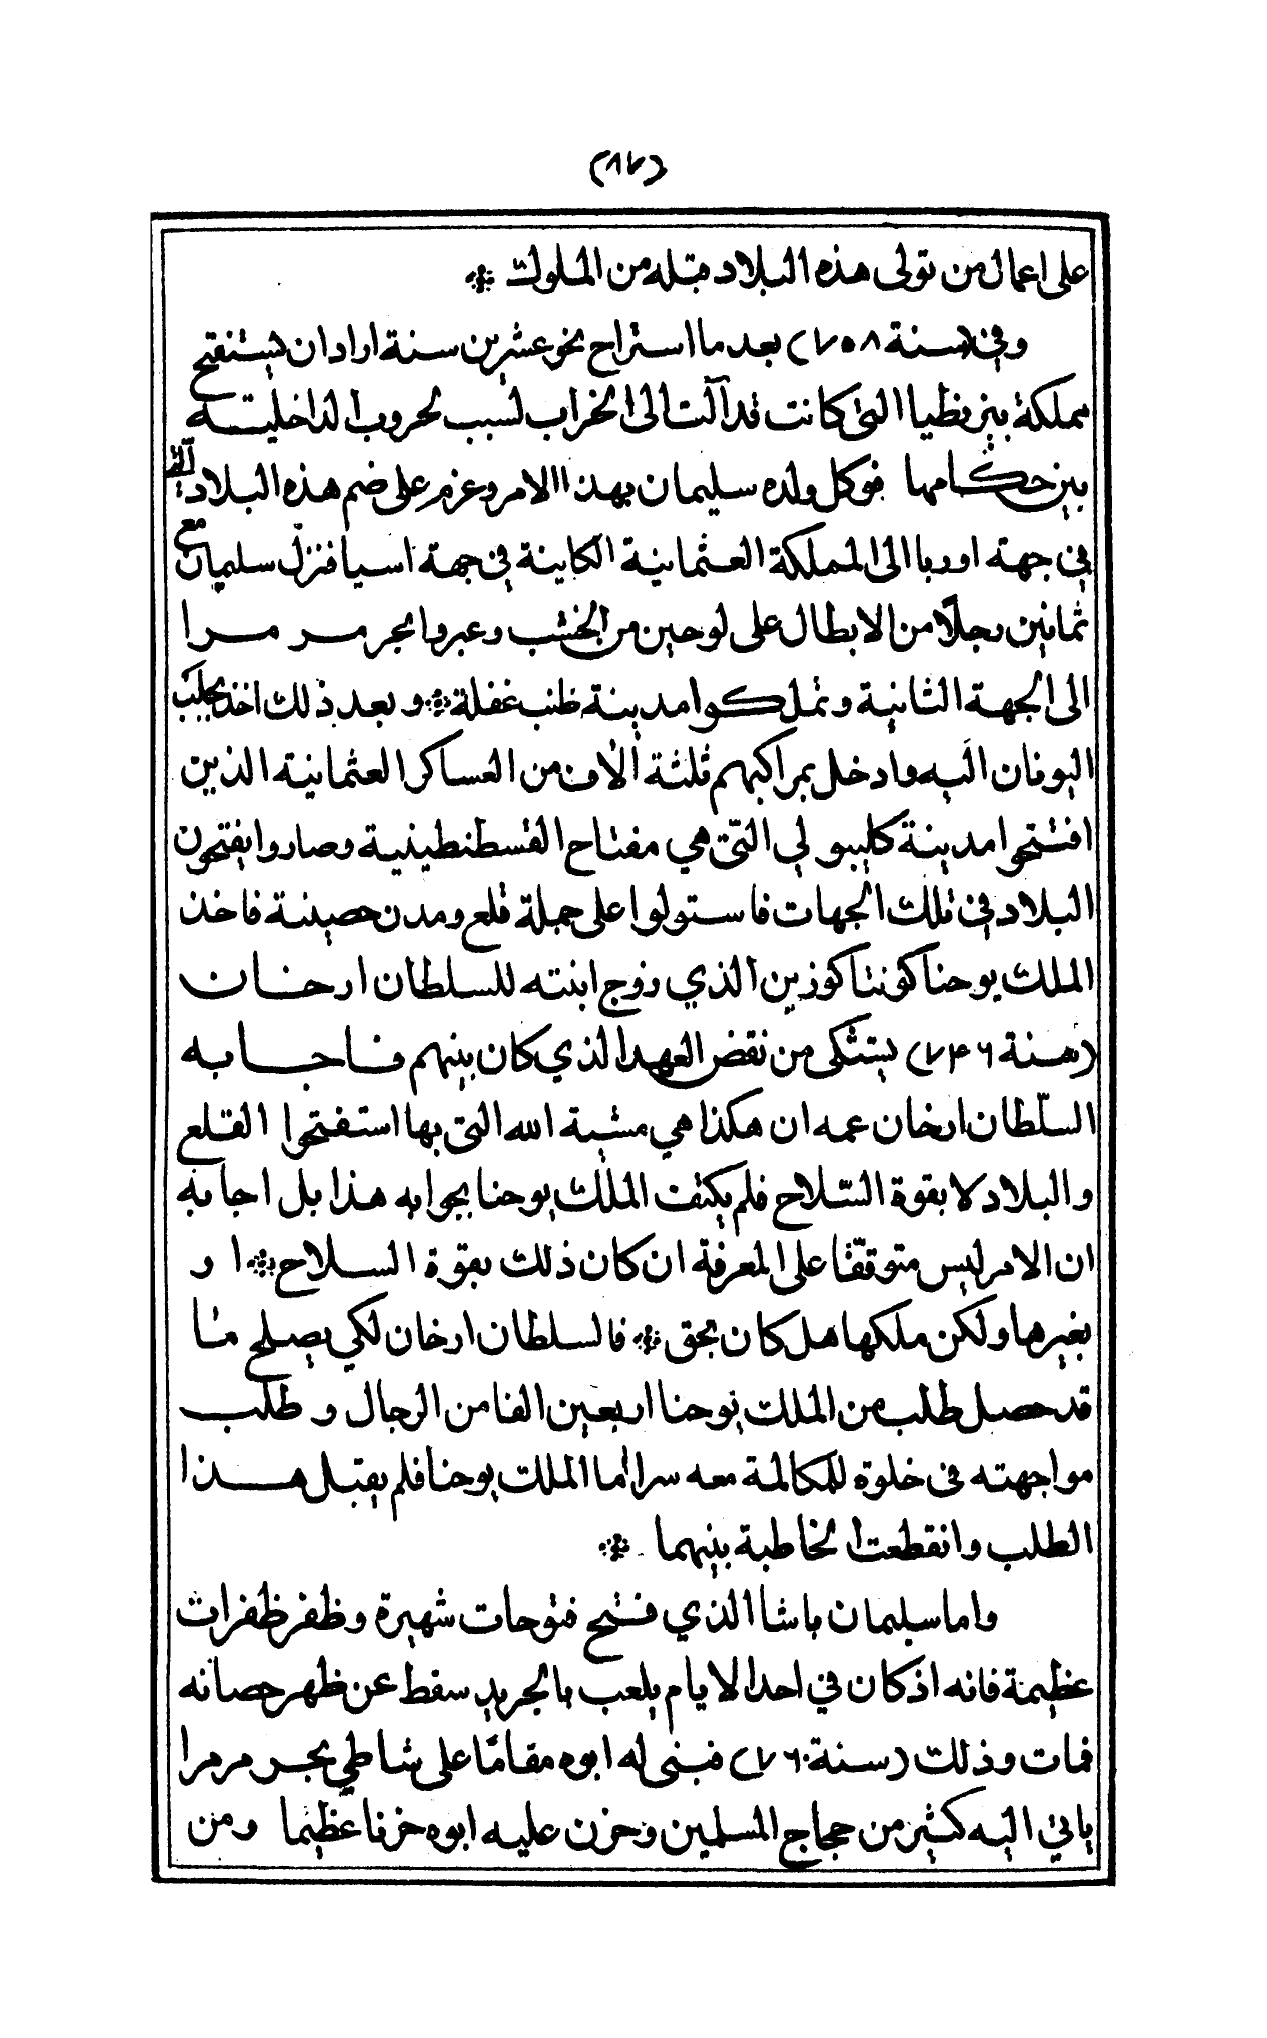 (٨٧)
على اعمال من تولى هذه البلاد قبله من الملوك *
وفي (سنة ٧٥٨) بعد ما استراح نحو عشرين سنة اراد ان يستنفتح
مملكة بيزنظيا التى كانت قد آلت الى الخراب لسبب لحروب الداخلية
بين حكامها فوكل ولده سليمان بهذا الامر وعزم على ضم هذه البلاد التي
في جهة اوربا الى المملكة العثمانية الكاينة في جهة اسيا فنزل سليمان مع
ثمانين رجلًا من الابطال على لوحين من الخشب وعبروا بحر مر مرا
الى الجهة الثانية وتملكوا مدينة ظنب غفلة * وبعد ذلك اخذ يجلب
اليونان اليه وادخل بمراكبهم ثلثة آلاف من العساكر العثمانية الذين
افتتحوا مدينة كليبو لي التّى هي مفتاح القسطنطينية وصاروا يفتحون
البلاد في تلك الجهات فاستولوا على جملة قلع ومدن حصينة فاخذ
الملك يوحنا كونتاكوزين الذي زوج ابنته للسلطان ارخان
(سنة ٧٤٦) يشتكى من نقض العهد الذي كان بينهم فاجابه
السلّطان ارخان عمه ان هكذا هي مشية الله التى بها استفتحوا القلع
والبلاد لا بقوة السّلاح فلم يكتف الملك يوحنا بجوابه هذا بل اجابه
ان الامر ليس متوقّفًا على المعرفة ان كان ذلك بقوة السلاح * ا و
بغيرها ولكن ملكها هل كان بحق * فالسلطان ارخان لكي يصلح ما
قد حصل طلب من الملك يوحنا اربعين الفا من الرجال و طلب
مواجهته في خلوة للمكالمة معه سرا اما الملك يوحنا فلم يقبل هذا
الطلب وانقطعت المخاطبة بينهما *
واما سليمان باشا الذي فتح فتوحات شهيرة وظفر ظفرات
عظيمة فانه اذ كان في احد الايام يلعب بالجريد سقط عن ظهر حصانه
فمات وذلك (سنة ٧٦٠) فبنى له ابوه مقامًا على شاطي بحر مرمرا
ياتي اليه كثير من حجاج المسلمين وحزن عليه ابوه حزنا عظيما ومن